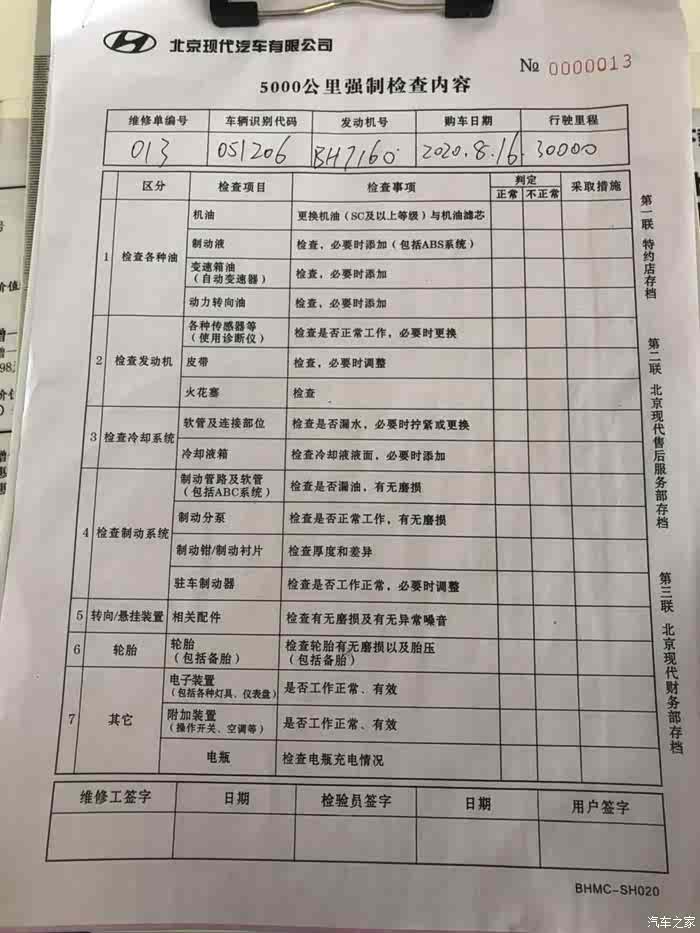 北京现代汽车有限公司
№ 0000013
5000公里强制检查内容
维修单编号 车辆识别代码 发动机号 购车日期 行驶里程
013 051206 BH7160 2020.8.16 30000
区分 检查项目 检查事项 判定 采取措施
正常 不正常
1 检查各种油 机油 更换机油（SC及以上等级）与机油滤芯
制动液 检查，必要时添加（包括ABS系统）
变速箱油（自动变速器） 检查，必要时添加
动力转向油 检查，必要时添加
2 检查发动机 各种传感器等（使用诊断仪） 检查是否正常工作，必要时更换
皮带 检查，必要时调整
火花塞 检查
3 检查冷却系统 软管及连接部位 检查是否漏水，必要时拧紧或更换
冷却液箱 检查冷却液液面，必要时添加
4 检查制动系统 制动管路及软管（包括ABC系统） 检查是否漏油，有无磨损
制动分泵 检查是否正常工作，有无磨损
制动钳/制动衬片 检查厚度和差异
驻车制动器 检查是否工作正常，必要时调整
5 转向/悬挂装置 相关配件 检查有无磨损及有无异常噪音
6 轮胎 轮胎（包括备胎） 检查轮胎有无磨损以及胎压（包括备胎）
7 其它 电子装置（包括各种灯具、仪表盘） 是否工作正常、有效
附加装置（操作开关、空调等） 是否工作正常、有效
电瓶 检查电瓶充电情况
维修工签字 日期 检验员签字 日期 用户签字
BHMC-SH020
第一联 特约店存档
第二联 北京现代售后服务部存档
第三联 北京现代财务部存档
汽车之家